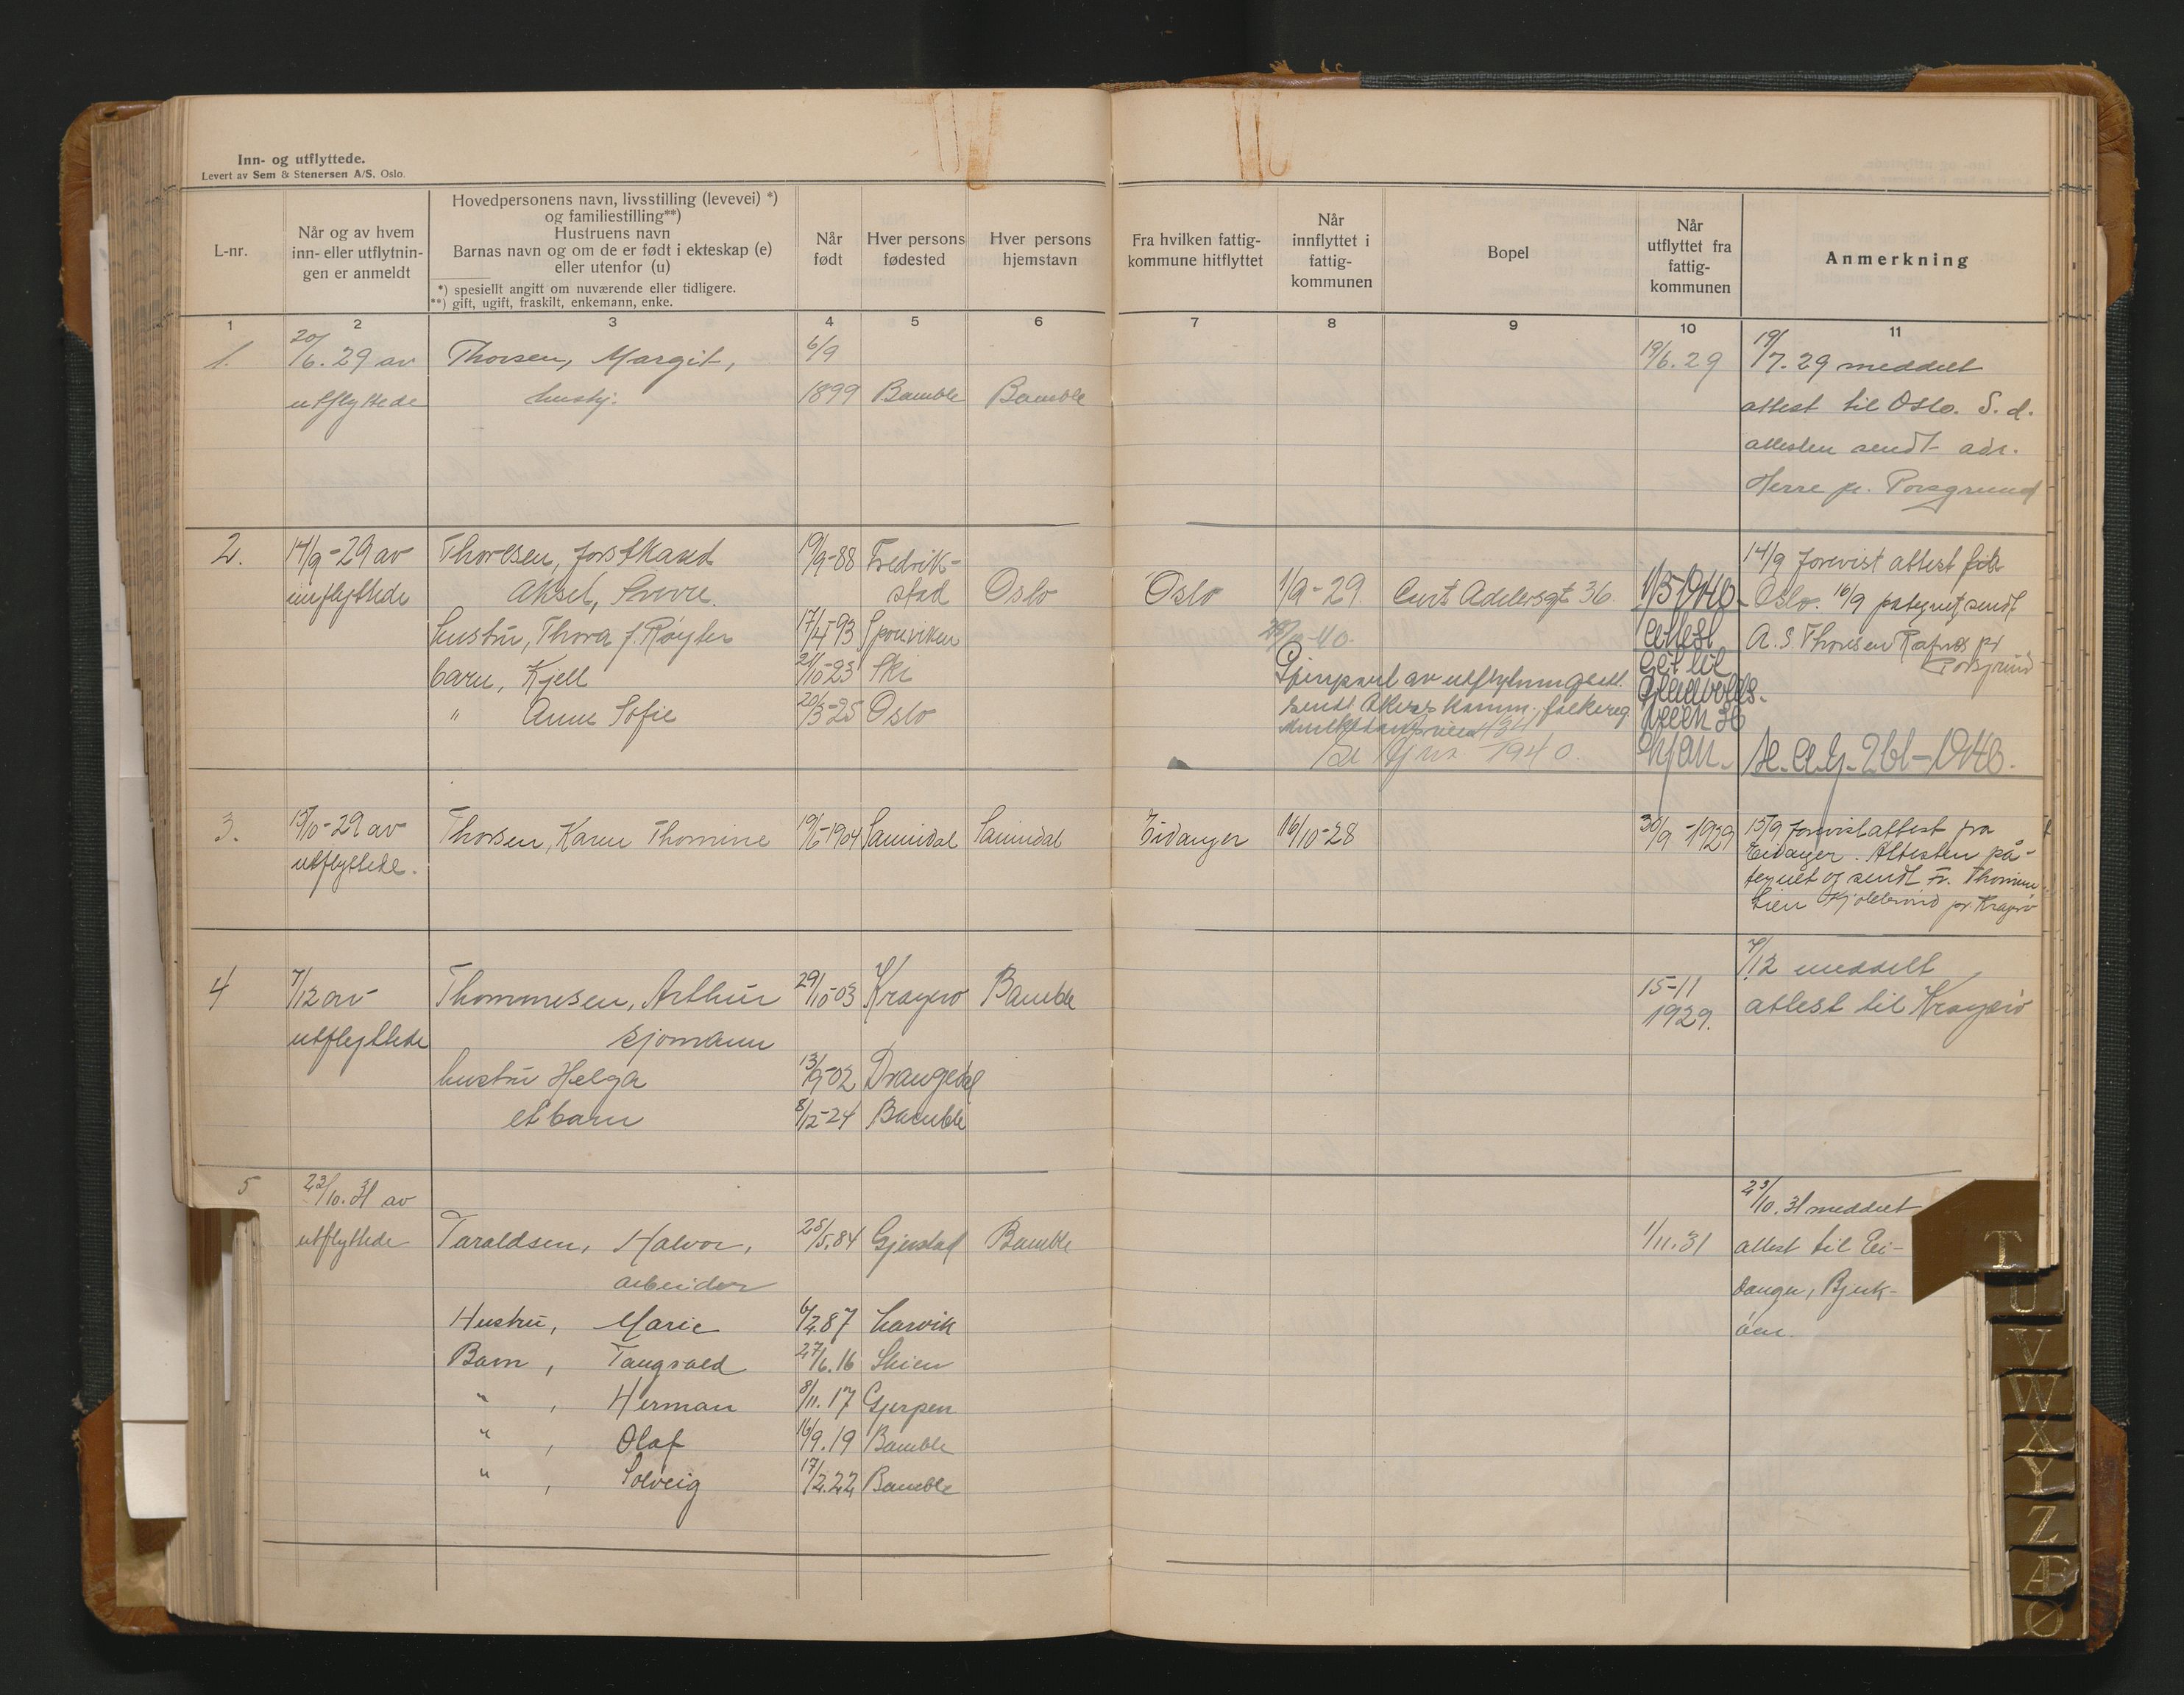 Inn- og utflyttede.
Levert av Sem & Stenersen A/S, Oslo.
L-nr.
Når og av hvem
inn- eller utflytnin-
gen er anmeldt
Hovedpersonens navn, livsstilling (levevei) *)
og familiestilling**)
Hustruens navn
Barnas navn og om de er født i ekteskap (e)
eller utenfor (u)
*) spesiellt angitt om nuværende eller tidligere.
**) gift, ugift, fraskilt, enkemann, enke.
Når
født
Hver persons
fødested
Hver persons
hjemstavn
Fra hvilken fattig-
kommune hitflyttet
Når
innflyttet i
fattig-
kommunen
Bopel
Når
utflyttet fra
fattig-
kommunen
Anmerkning
1 2 3 4 5 6 7 8 9 10 11
1. 20/6. 29 av Thorsen, Margit, 6/9 19/6. 29 19/7. 29 meddelt
utflyttede hushj. 1899 Bamble Bamble attest til Oslo. S. d.
attesten sendt adr.
Herre pr. Porsgrund
2. 14/9-29 av Thoresen, forstkand. 19/9-88 Fredrik- 14/9 forevist attest fra
innflyttede Aksel, Sverre. stad Oslo Oslo 1/9-29. Curt Adelersgt 36 1/5-1940- Oslo. 16/9 pategnet sendt
hustru, Thora f. Røyter 17/4-93 -40. attest A. S. Thoresen Rafnes pr
Porsgrund
barn, Kjell 21/10-23 Ski Gjenpart av utflytningsatt. til
" Anne Sofie 20/3-25 Oslo sendt Akers komm. folkereg.
Se Gjnr 1940. 261-1940.
3. 15/10-29 av Thorsen, Karen Thomine 19/6-1904 Sannidal Sannidal Eidanger 16/10-28 30/9-1929 15/9 forevist attest fra
utflyttede. Eidanger. Attesten på-
tegnet og sendt Fr. Thomine
Lien pr. Kragerø
4 7/12 av Thommesen, Arthur 29/10-03 Kragerø Bamble 15-11 7/12 meddelt
1929. attest til Kragerø
utflyttede sjømann
hustru Helga 13/9-02 Drangedal
et barn 8/12-24 Bamble
5 23/10. 31 av 23/10. 31 meddelt
utflyttede Taraldsen, Halvor, 25/5. 84 Gjerstad Bamble 1/11. 31 attest til Ei-
arbeider danger, Bjerk-
Hustru, Marie 6/2. 87 Larvik øen.
Barn, Tangvald 27/6. 16 Skien
" , Herman 8/11. 17 Gjerpen
" , Olaf 16/9. 19 Bamble
" , Solveig 17/2. 22 Bamble
T
U
V
W
X
Y
Z
Æ
Ø